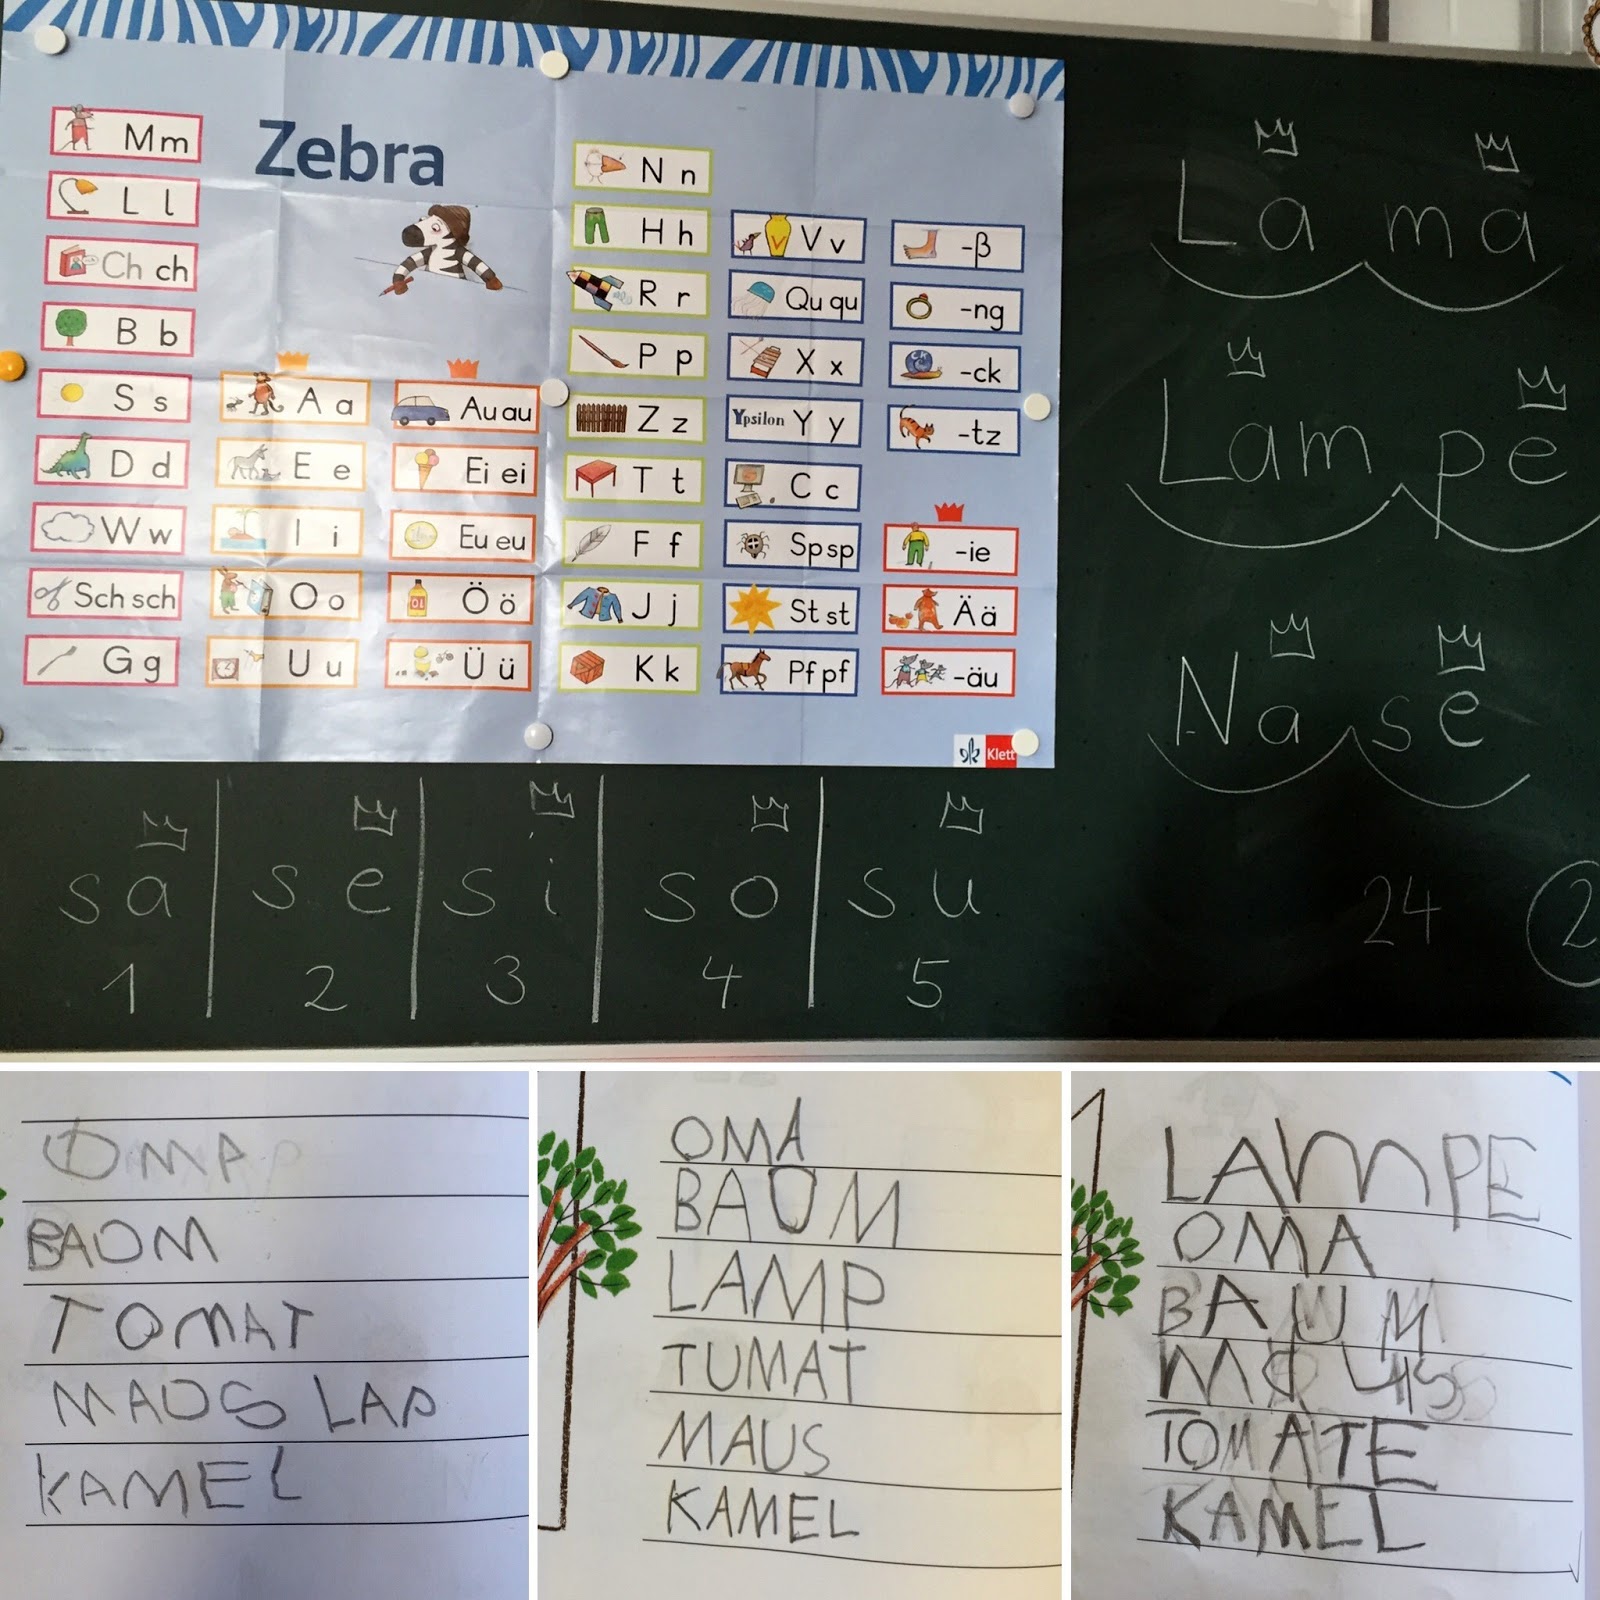 Zebra
M m
L l
Ch ch
B b
S s
D d
W w
Sch sch
G g
A a
E e
I i
O o
U u
Au au
Ei ei
Eu eu
Ö ö
Ü ü
N n
H h
R r
P p
Z z
T t
F f
J j
K k
V v
Qu qu
X x
Ypsilon Y y
C c
Sp sp
St st
Pf pf
-ß
-ng
-ck
-tz
-ie
Ä ä
-äu
Klett
La ma
Lam pe
Na se
24 2
sa se si so su
1 2 3 4 5
OMA
BAOM
TOMAT
MAOS LAP
KAMEL
OMA
BAUM
LAMP
TUMAT
MAUS
KAMEL
LAMPE
OMA
BAUM
TOMATE
KAMEL